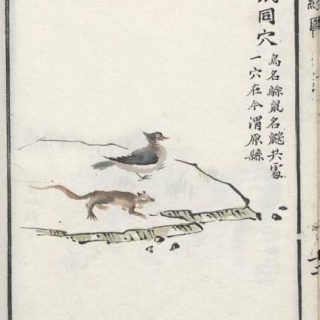 同穴
鳥名鵌鼠名鼵共處
一穴在今渭原縣